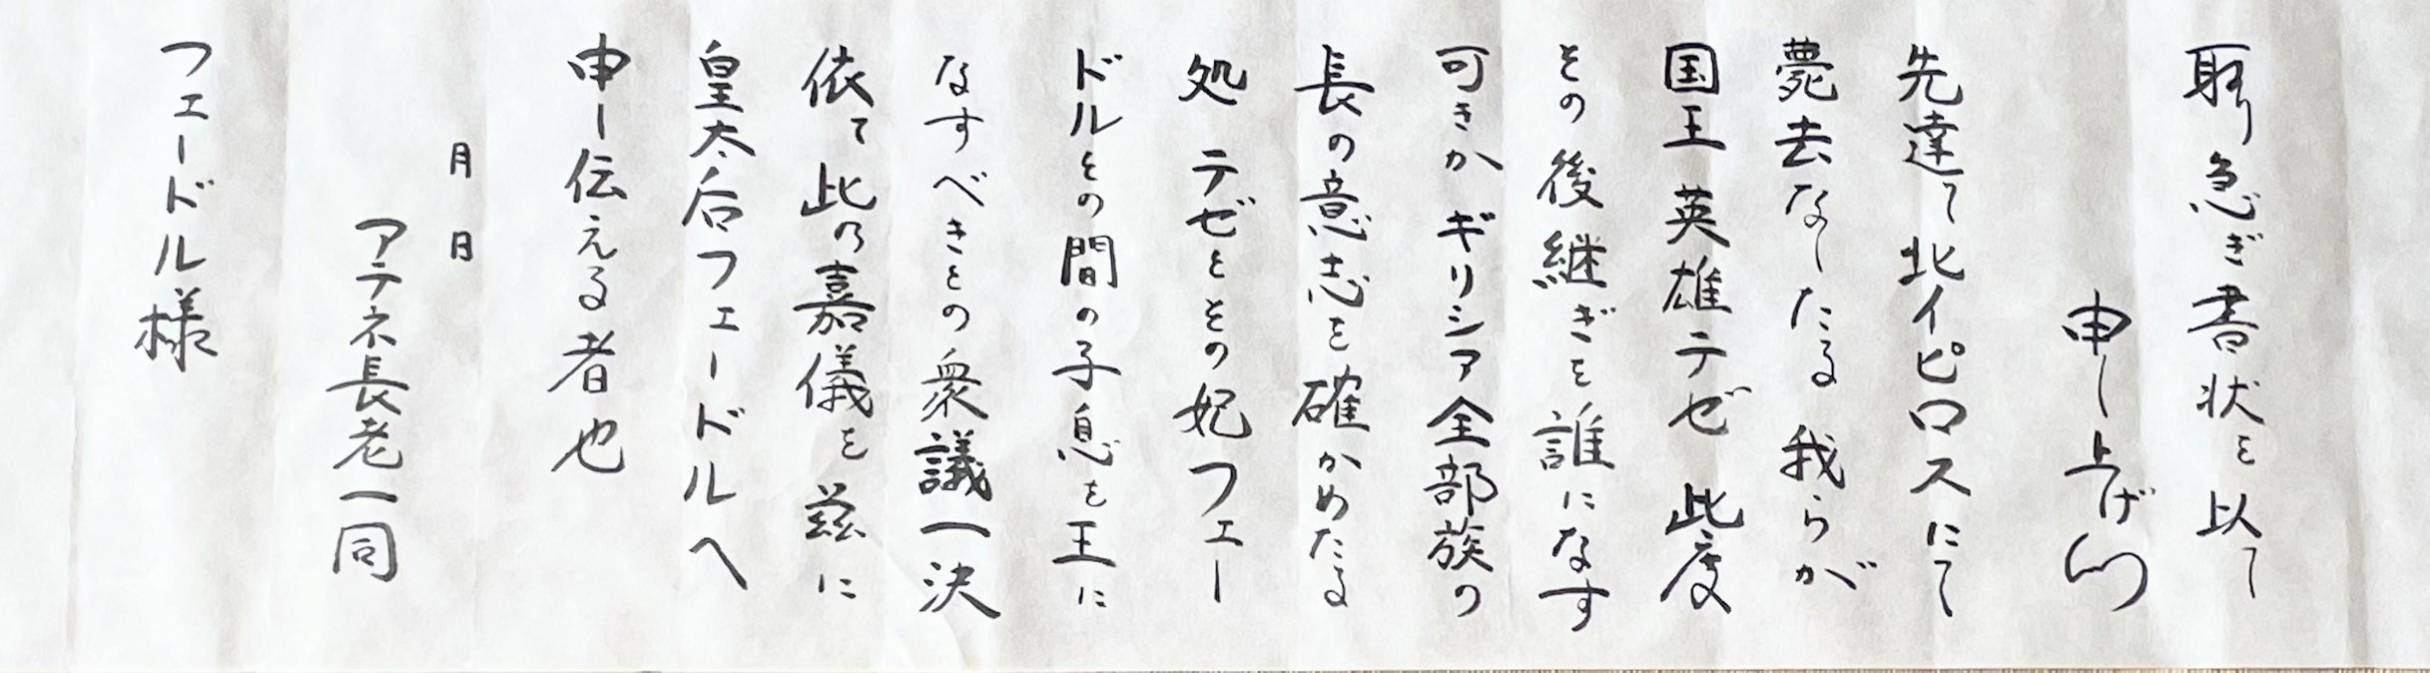 取り急ぎ書状を以て
申し上げ候
先達て北イピロスにて
薨去なしたる我らが
国王英雄テゼ 此度
その後継ぎを誰になす
可きか ギリシア全部族の
長の意志を確かめたる
処 テゼとその妃フェー
ドルとの間の子息を王に
なすべきとの衆議一決
依て此の嘉儀を茲に
皇太后フェードルへ
申し伝える者也
月 日
アテネ長老一同
フェードル様